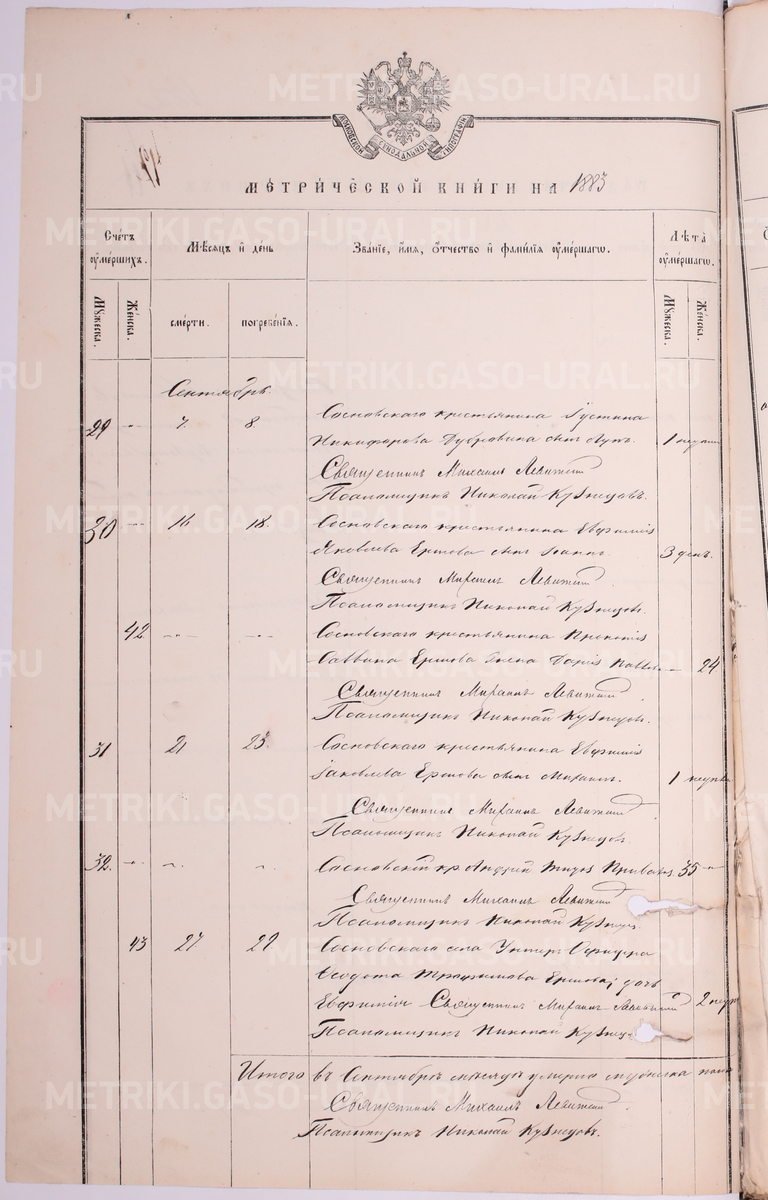 МОСКОВСКОЙ СѴНОДАЛЬНОЙ ТИПОГРАФІИ
МЕТРИЧЕСКОЙ КНИГИ НА 1883
Счетъ оумершихъ.
Мѣсяцъ и день
Званіе, имя, отчество и фамилія оумершагѡ.
Лѣта оумершагѡ.
Мꙋжеска.
Женска.
смерти.
погребенія.
Мꙋжеска.
Женска.
Сентябрь.
29 " 7. 8 Сосновскаго крестьянина Іустина
Никифорова Дубровина сынъ 1
Священникъ Михаилъ Левитскій
Псаломщикъ Николай Кузнецовъ.
30 " 16 18. Сосновскаго крестьянина Евфимія
Яковлева Ершова сынъ Іоаннъ. 3 день.
Священникъ Михаилъ Левитскій
Псаломщикъ Николай Кузнецовъ.
42 Сосновскаго крестьянина Прокопія
Саввина Ершова жена 24
Священникъ Михаилъ Левитскій
Псаломщикъ Николай Кузнецовъ.
31 21 23. Сосновскаго крестьянина Евфимія
Іаковлева Ершова сынъ Михаилъ. 1
Священникъ Михаилъ Левитскій
Псаломщикъ Николай Кузнецовъ
32. " Сосновскій кр. Андрей 35 "
Священникъ Михаилъ Левитскій
Псаломщикъ Николай
43 27 29 Сосновскаго села Унтеръ Офицера
Ѳеодота Трофимова Ершова дочь
Евфимія Священникъ Михаилъ Левитскій 2
Псаломщикъ Николай
Итого въ Сентябрѣ мѣсяцѣ умерло мужеска пола
Священникъ Михаилъ Левитскій
Псаломщикъ Николай Кузнецовъ.
METRIKI.GASO-URAL.RU